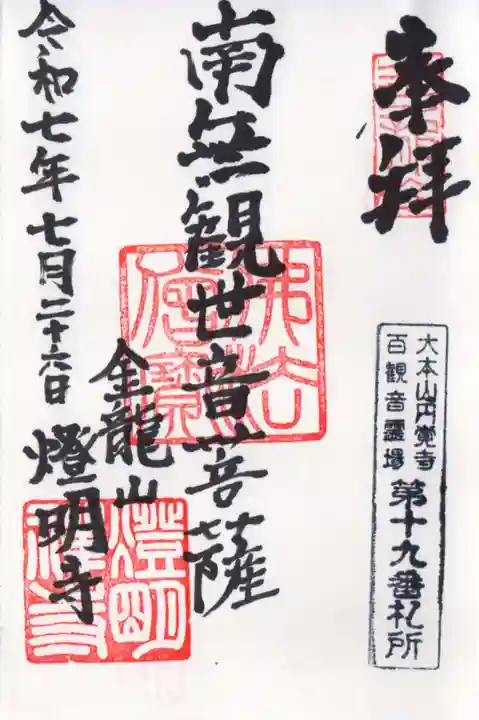 奉拝
大本山円覚寺
百観音霊場
第十九番札所
南無観世音菩薩
佛法僧寶
金龍山
燈明寺
燈明禅寺
令和七年七月二十六日